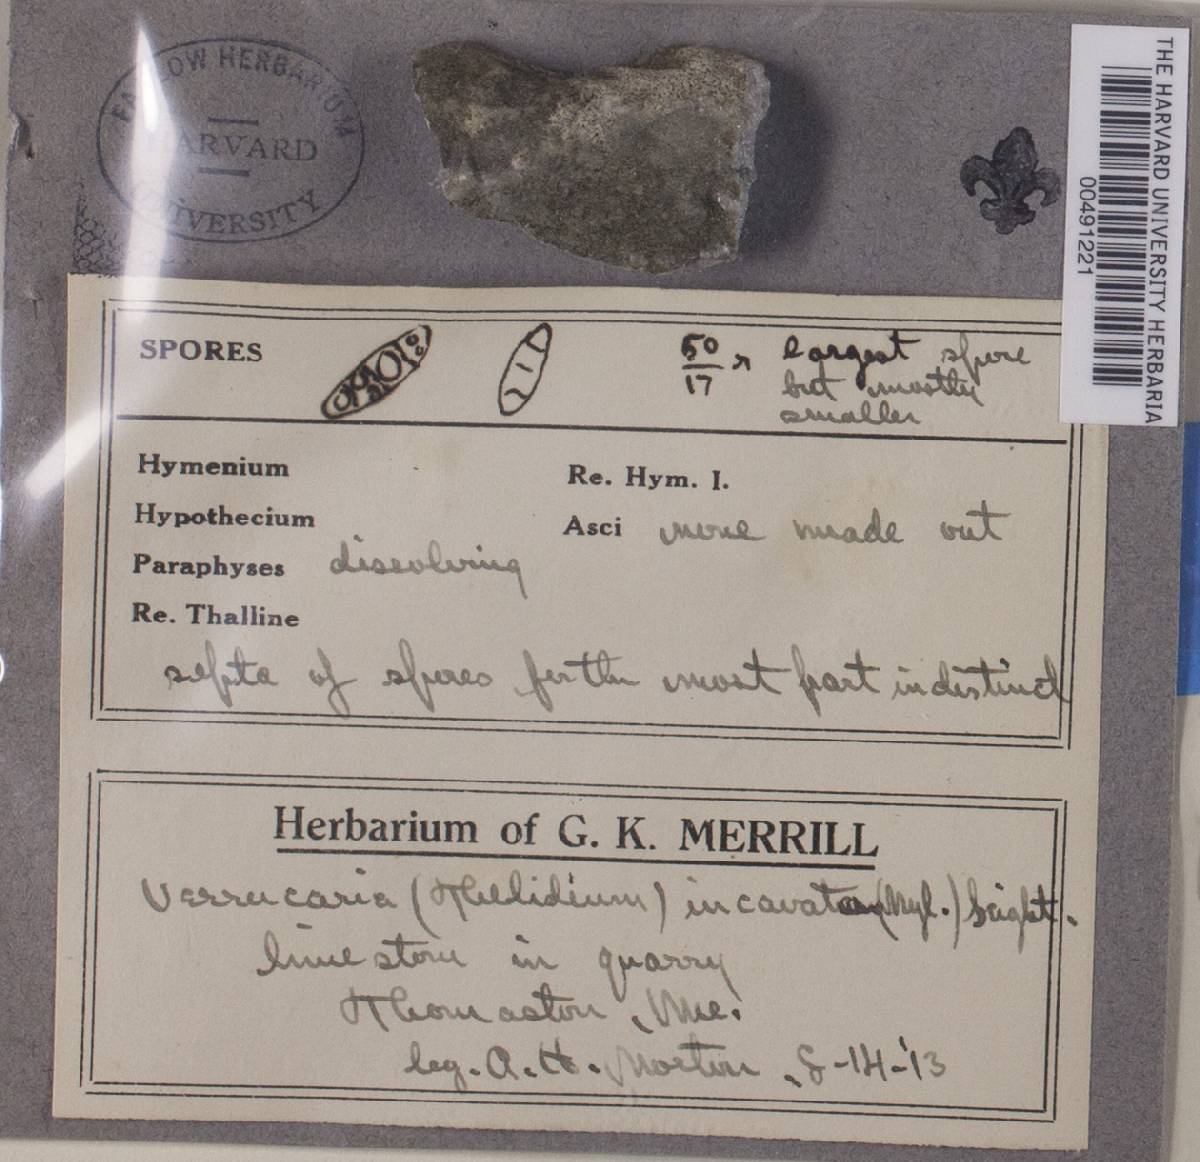 FARLOW HERBARIUM
HARVARD
UNIVERSITY
THE HARVARD UNIVERSITY HERBARIA
00491221
SPORES 50/17 largest spore
but mostly
smaller
Hymenium Re. Hym. I.
Hypothecium Asci none made out
Paraphyses dissolving
Re. Thalline
septa of spores for the most part indistinct
Herbarium of G. K. MERRILL
Verrucaria (Thelidium) incavata (Nyl.)
limestone in quarry
Thomaston, Me.
leg. A. H. Norton, 8-14-'13